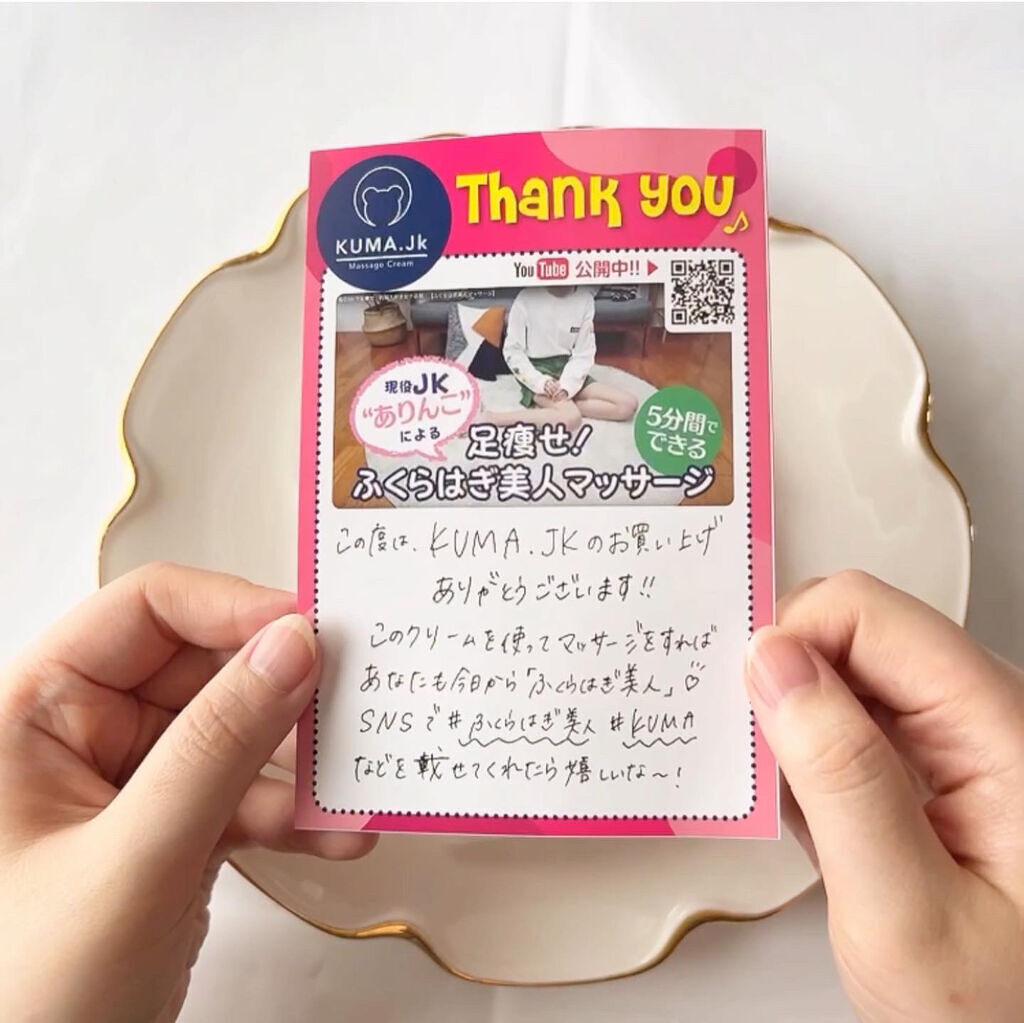 KUMA.Jk
Massage Cream
Thank you
YouTube 公開中!!
現役JK
"ありんこ"
による
5分間で
できる
足痩せ!
ふくらはぎ美人マッサージ
この度は、KUMA.JKのお買い上げ
ありがとうございます!!
このクリームを使ってマッサージをすれば
あなたも今日から「ふくらはぎ美人」♡
SNSで#ふくらはぎ美人 #KUMA
などを載せてくれたら嬉しいな〜!